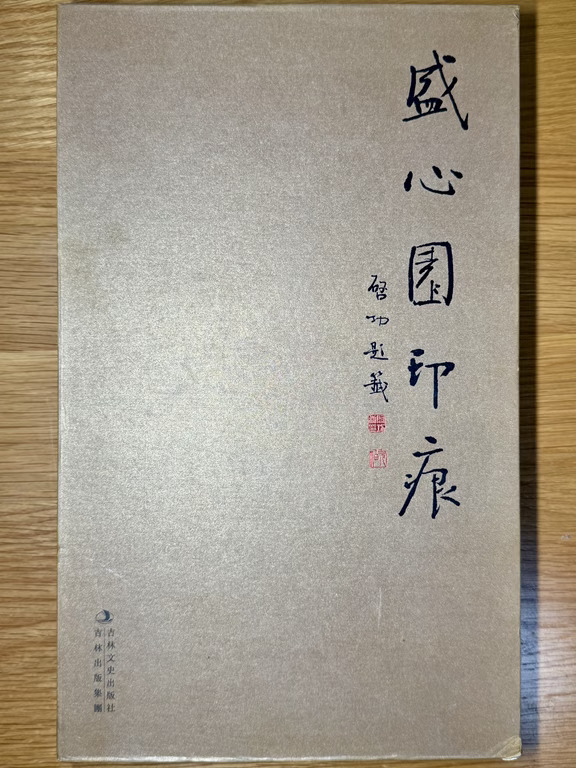 盛心園印痕
啓功題籤
吉林文史出版社
吉林出版集團